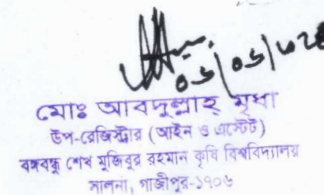 মোঃ আবদুল্লাহ্ মৃধা
উপ-রেজিস্ট্রার (আইন ও এস্টেট)
বঙ্গবন্ধু শেখ মুজিবুর রহমান কৃষি বিশ্ববিদ্যালয়
সালনা, গাজীপুর-১৭০৬